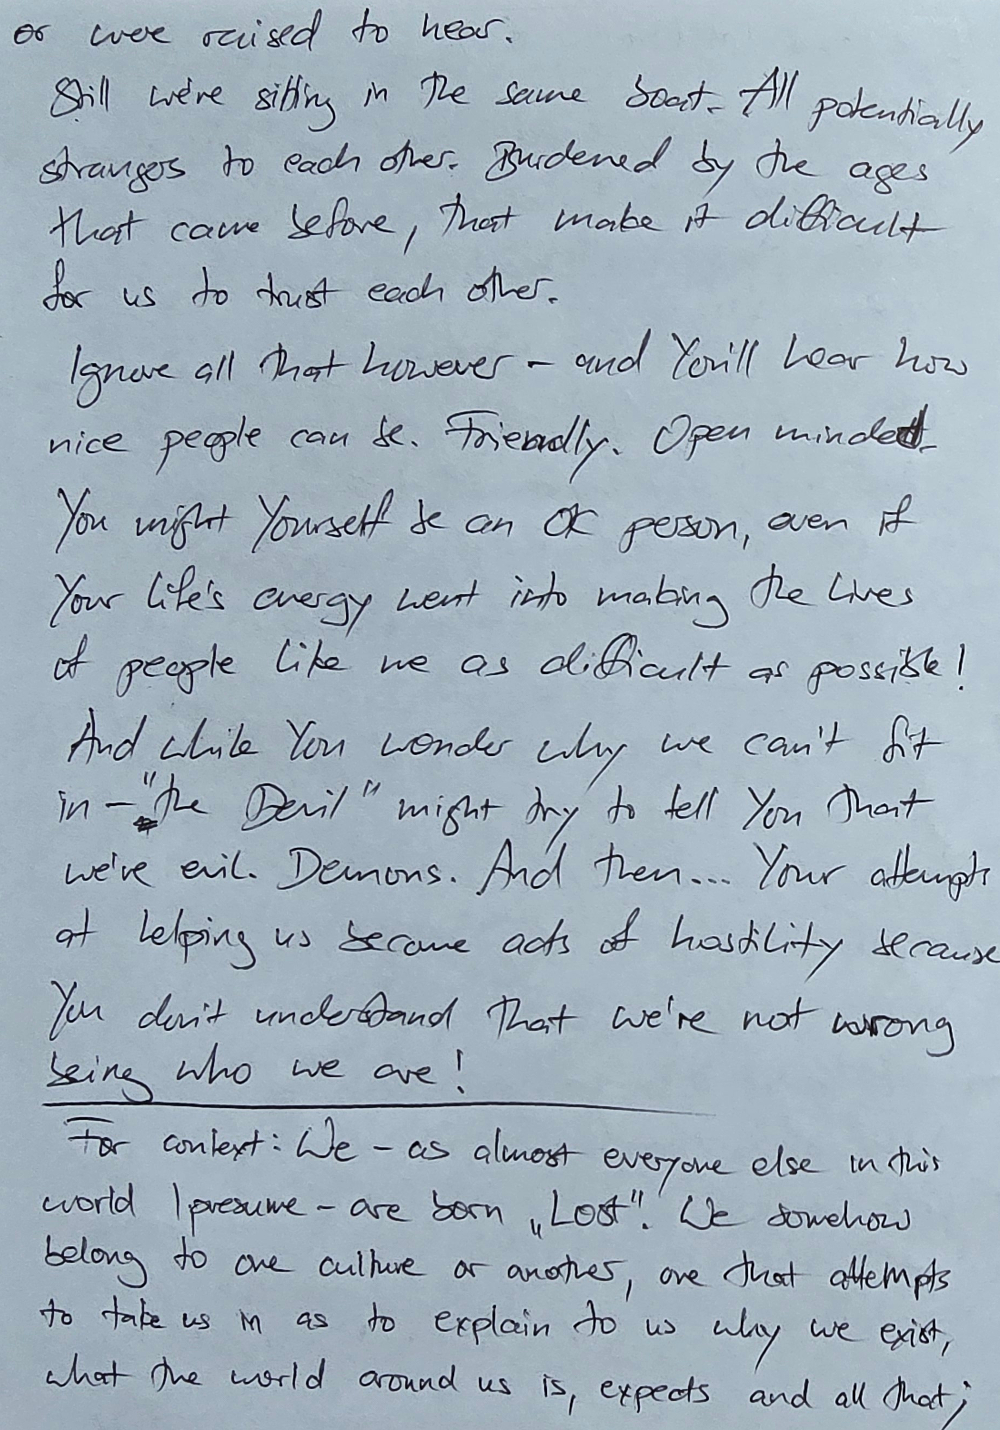 or were raised to hear.
Still we're sitting in the same boat. All potentially
strangers to each other. Burdened by the ages
that came before, that make it difficult
for us to trust each other.
Ignore all that however – and You'll hear how
nice people can be. Friendly. Open minded.
You might Yourself be an OK person, even if
Your life's energy went into making the lives
of people like me as difficult as possible!
And while You wonder why we can't fit
in – "the Devil" might try to tell You that
we're evil. Demons. And then... Your attempts
at helping us become acts of hostility because
You don't understand that we're not wrong
being who we are!
For context: We – as almost everyone else in this
world I presume – are born „Lost". We somehow
belong to one culture or another, one that attempts
to take us in as to explain to us why we exist,
what the world around us is, expects and all that;